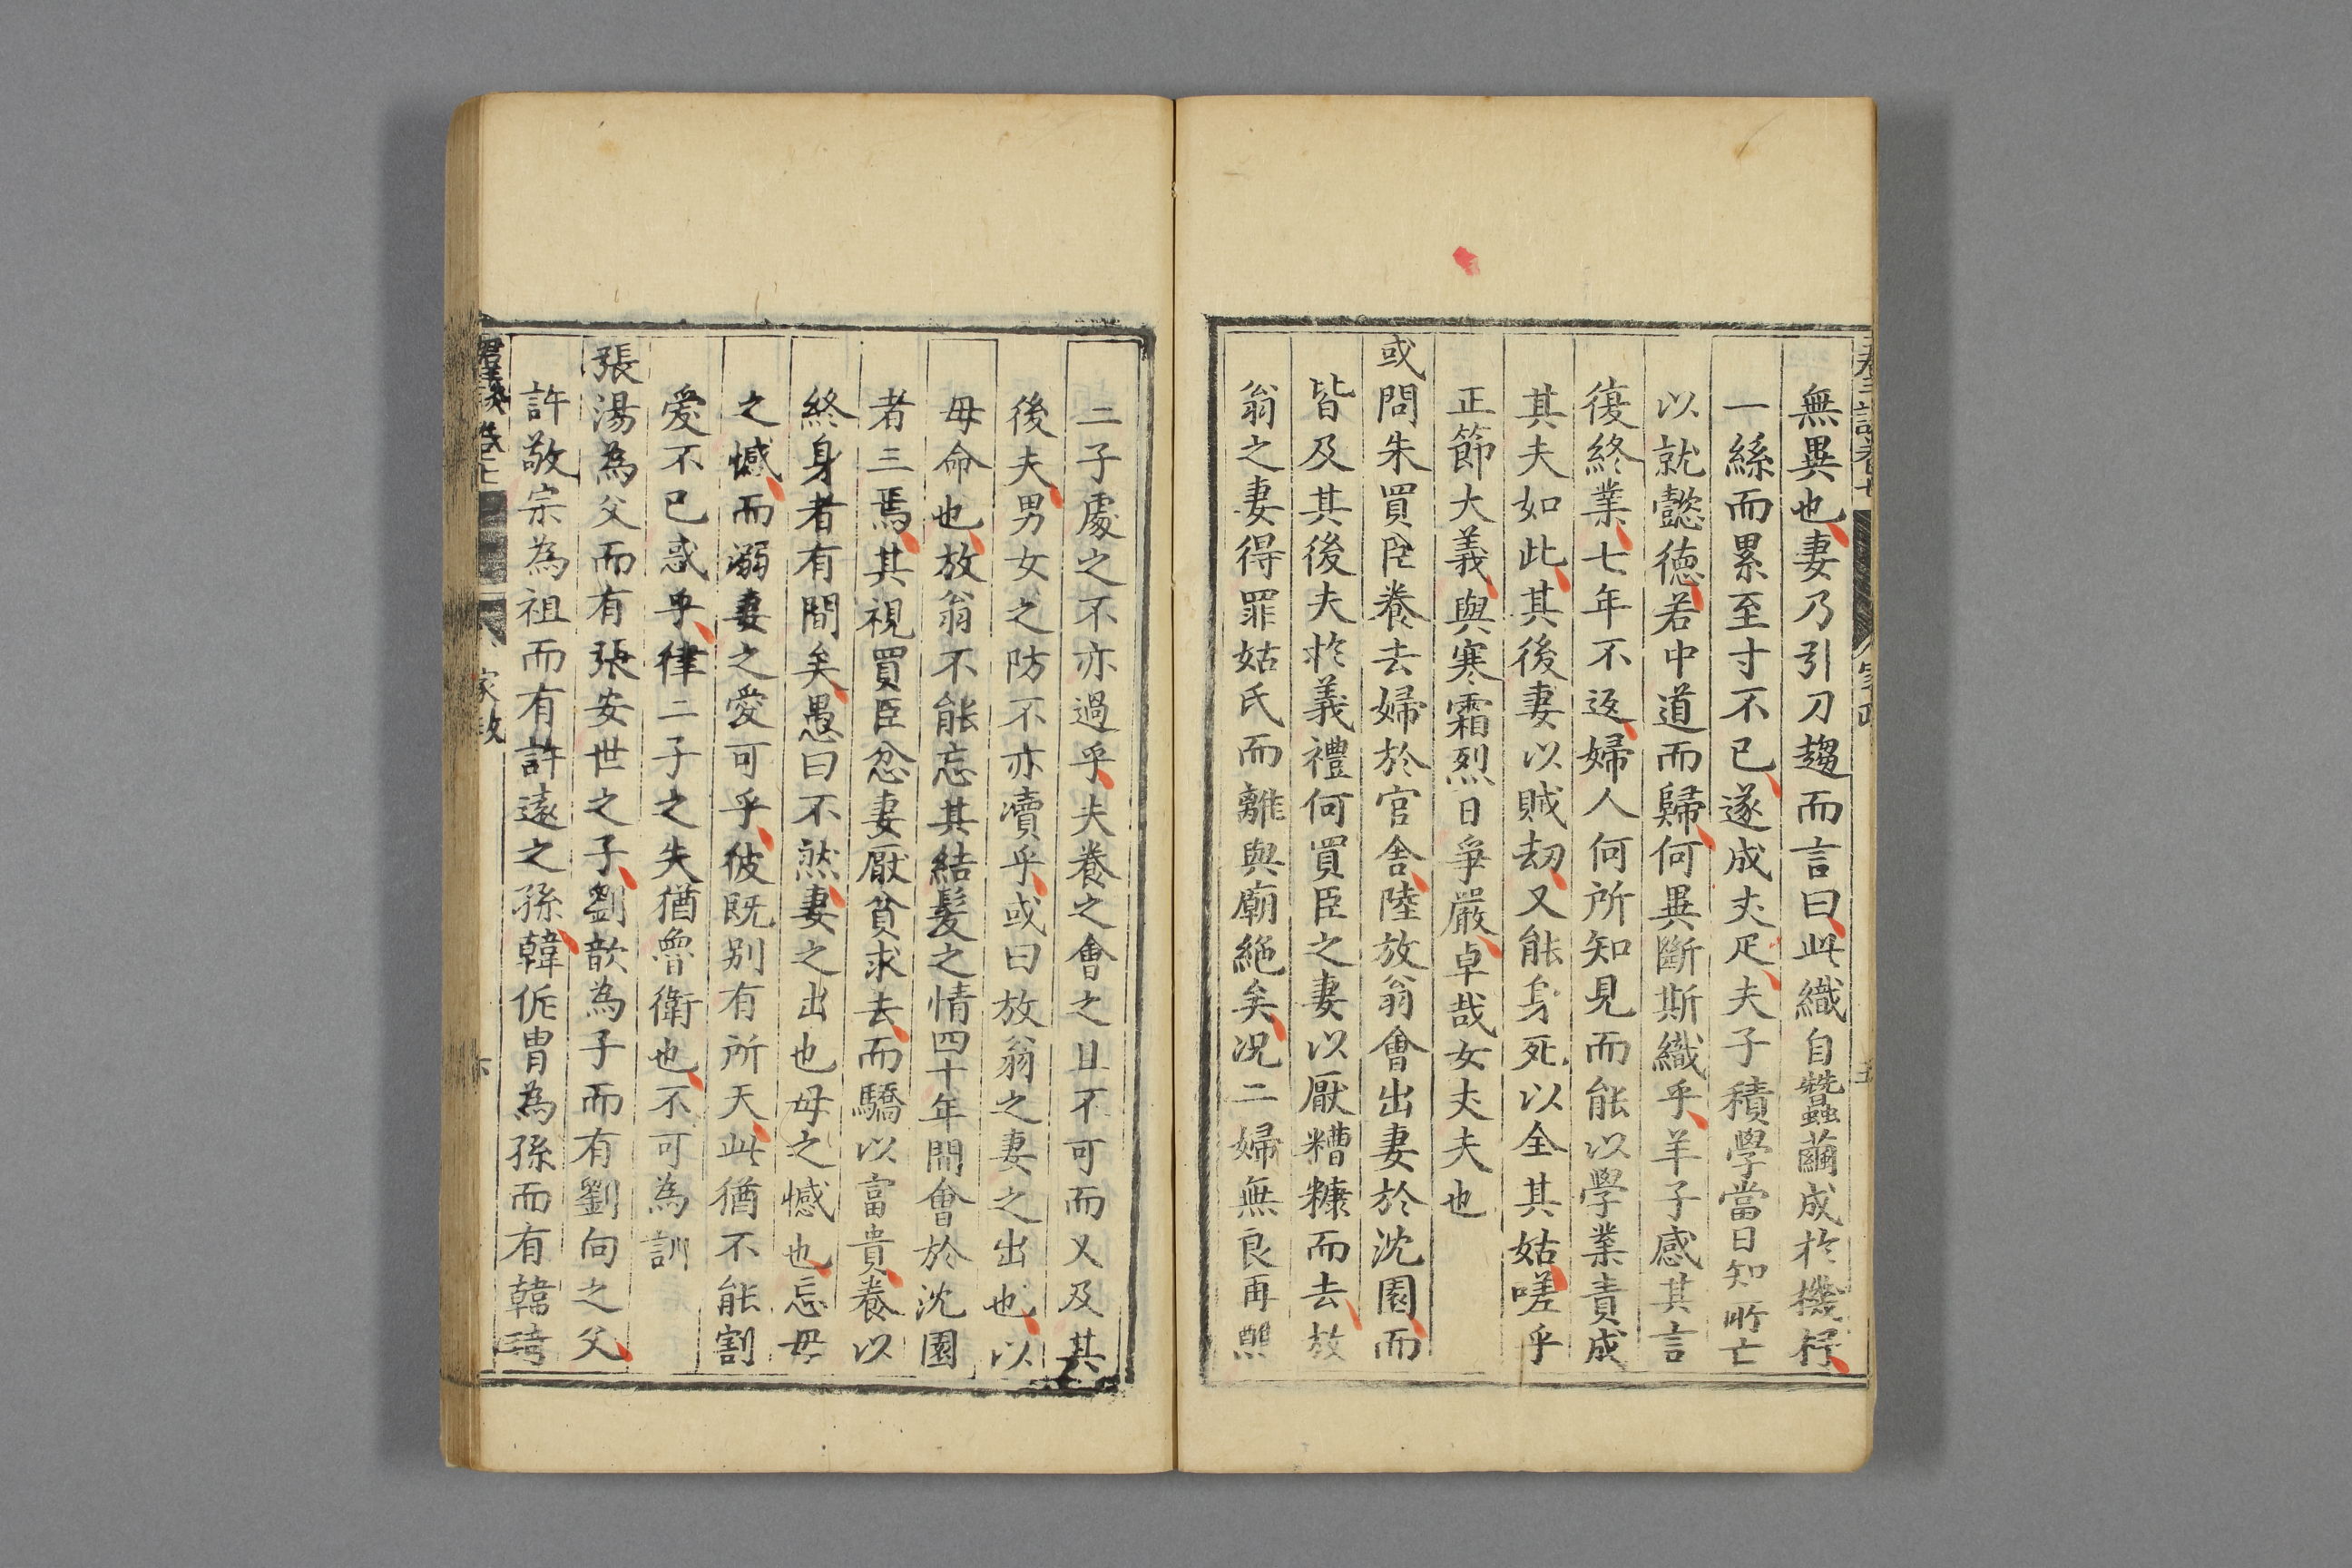 無異也妻乃引刀趨而言曰此織自蠶繭成於機杼
一絲而累至寸不已遂成丈疋夫子積學當日知所亡
以就懿德若中道而歸何異斷斯織乎羊子感其言
復終業七年不返婦人何所知見而能以學業責成
其夫如此其後妻以賊刼又能身死以全其姑嗟乎
正節大義與寒霜烈日爭嚴卓哉女丈夫也
或問朱買臣養去婦於官舍陸放翁會出妻於沈園而
皆及其後夫於義禮何買臣之妻以厭糟糠而去放
翁之妻得罪姑氏而離與廟絕矣况二婦無良再熊
二子處之不亦過乎夫養之會之且不可而又及其
後夫男女之防不亦瀆乎或曰放翁之妻之出也以
母命也放翁不能忘其結髮之情四十年間會於沈園
者三焉其視買臣忿妻厭貧求去而驕以富貴養以
終身者有間矣愚曰不然妻之出也母之憾也忘母
之憾而溺妻之愛可乎彼既别有所天此猶不能割
愛不已惑乎律二子之失猶魯衛也不可為訓
張湯為父而有張安世之子劉歆為子而有劉向之父
許敬宗為祖而有許遠之孫韓侂胄為孫而有韓琦
家政